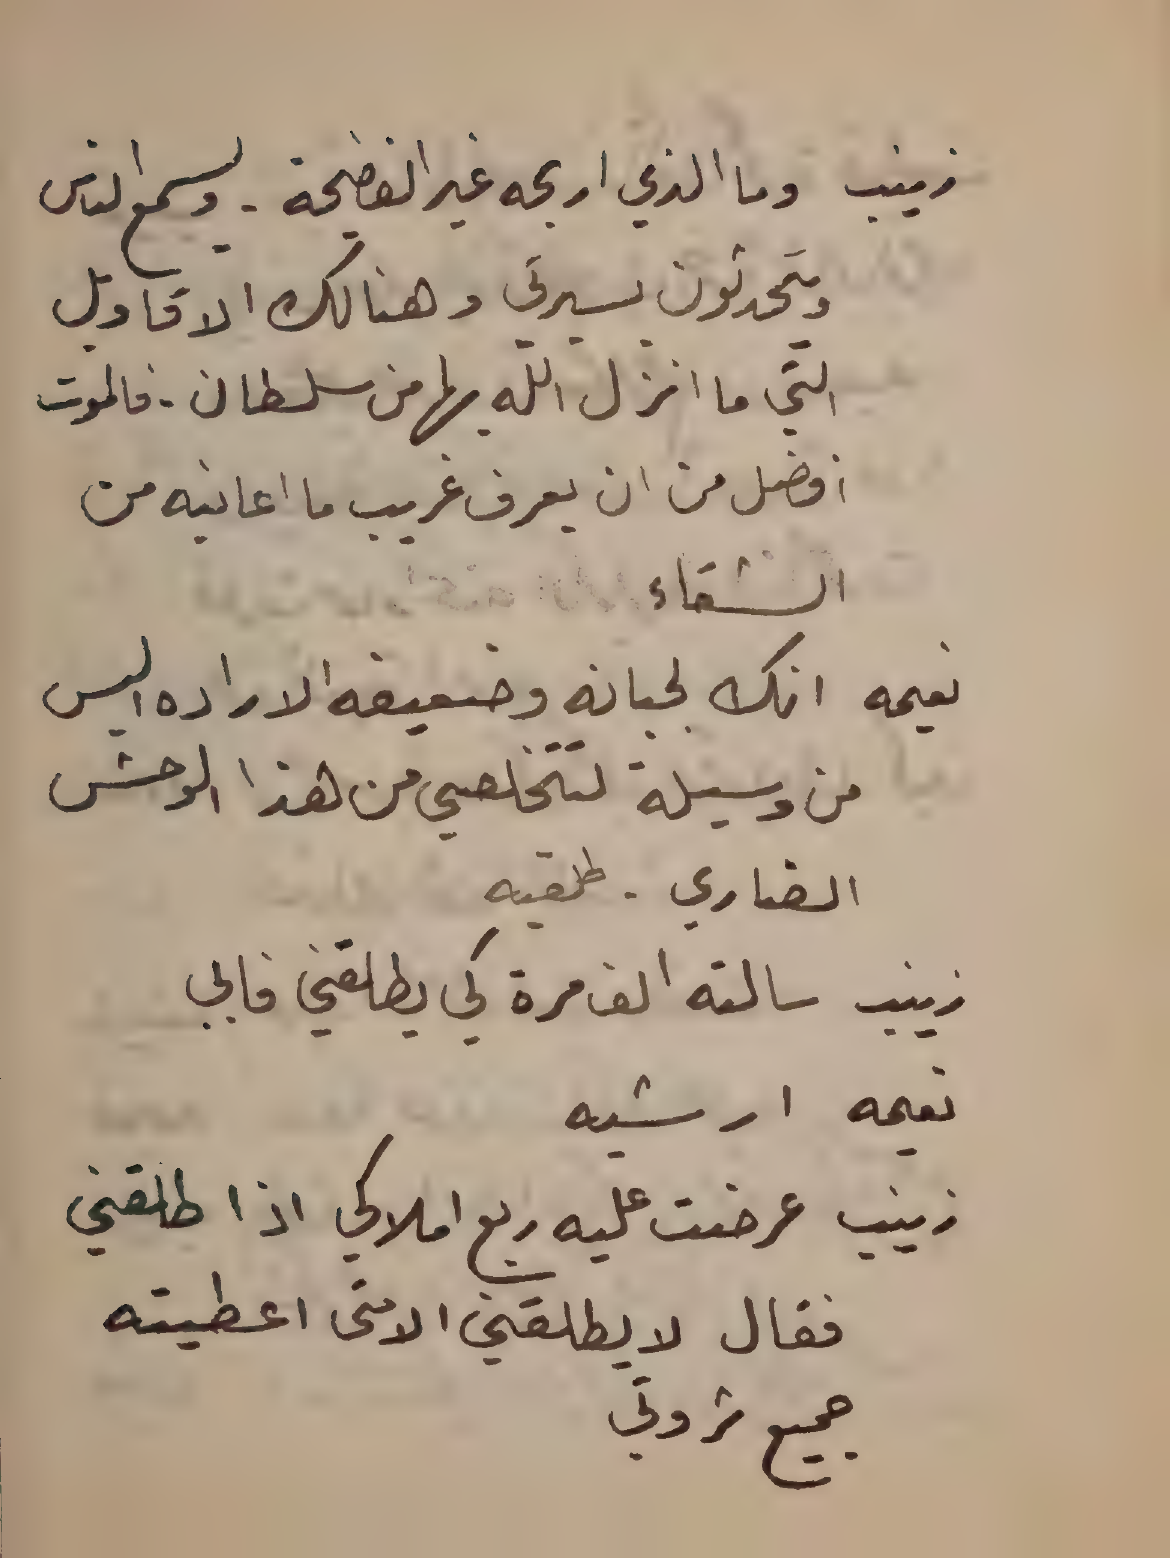 زينب وما الذي اربحه غير الفضيحة - ويسمع الناس
ويتحدثون بسيرتي وهنالك الاقاويل
التي ما انزل الله بها من سلطان - فالموت
افضل من ان يعرف غريب ما اعانيه من
الشقاء
نعيمه انك لجبانه وضعيفه الاراده اليس
من وسيلة لتتخلصي من هذا الوحش
الضاري - طلقيه
زينب سالته الف مرة كي يطلقني فابى
نعيمه ارشيه
زينب عرضت عليه ربع املاكي اذا طلقني
فقال لا يطلقني الا متى اعطيته
جميع ثروتي